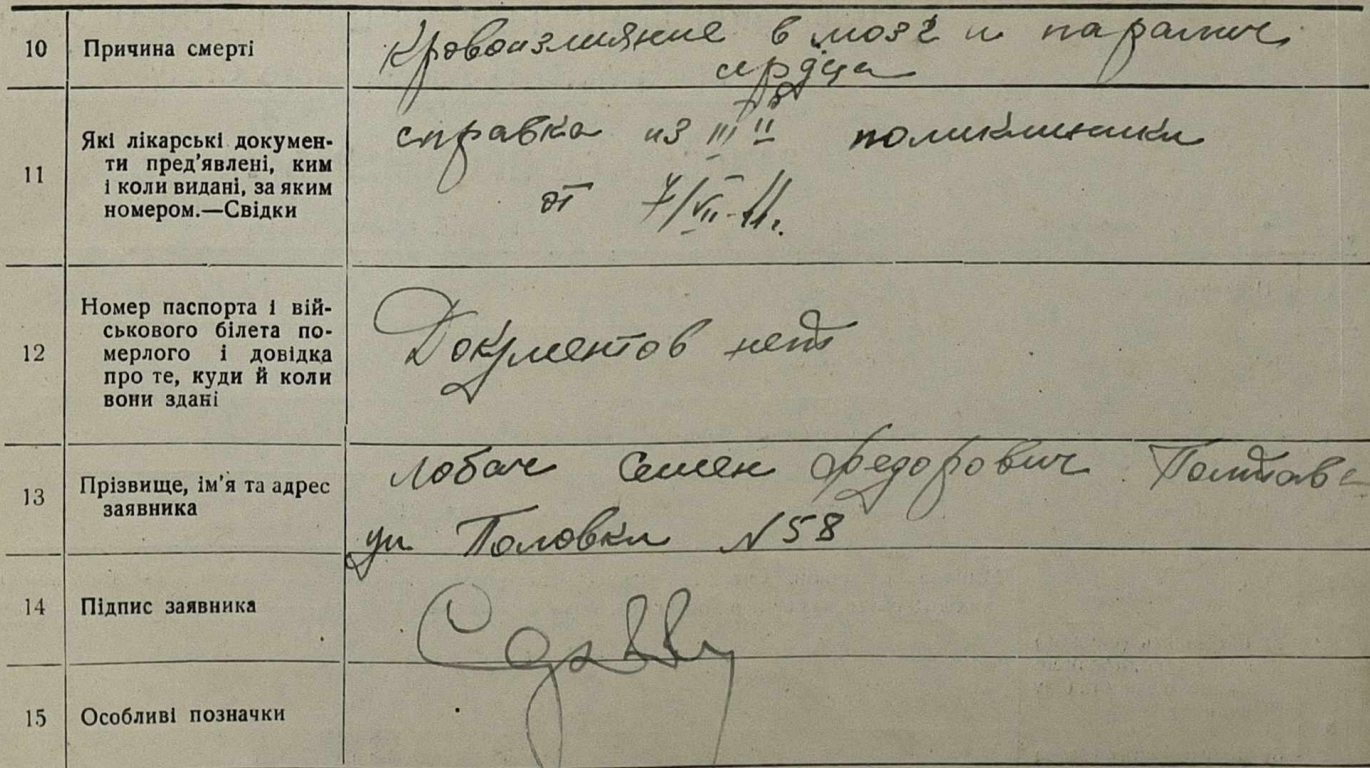 10 Причина смерті
Кровоизлияние в мозг и паралич
сердца
11 Які лікарські докумен-
ти пред'явлені, ким
і коли видані, за яким
номером.—Свідки
справка из III поликлиники
от 7/VII
12 Номер паспорта і вій-
ськового білета по-
мерлого і довідка
про те, куди й коли
вони здані
Документов нет
13 Прізвище, ім'я та адрес
заявника
Лобач Семен Федорович Полтава
ул Половки №58
14 Підпис заявника
15 Особливі позначки